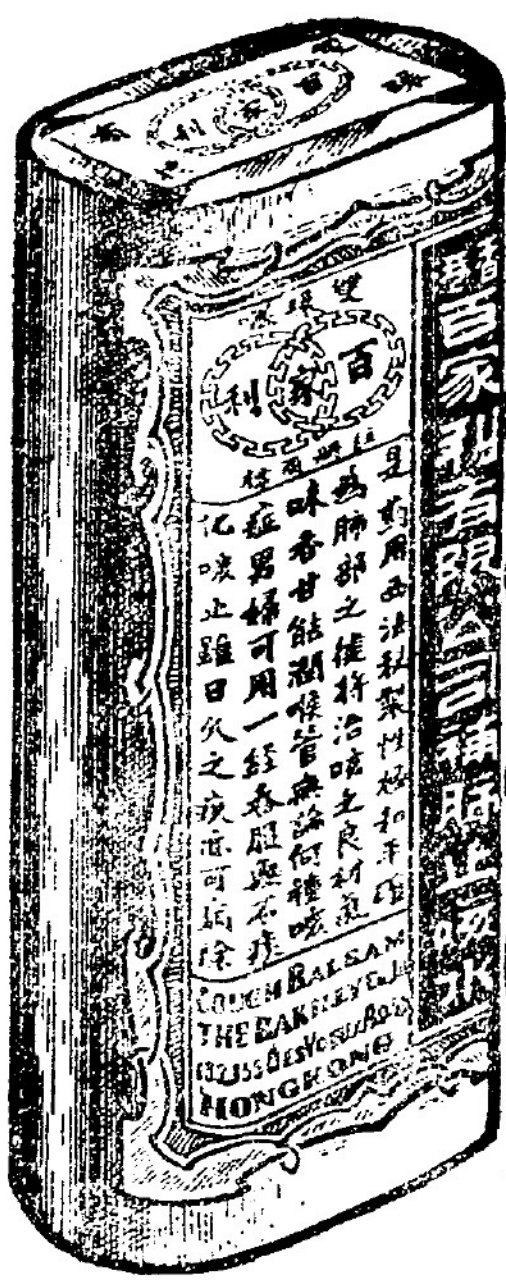 百家利
香港百家利有限公司補肺止咳水
雙環為
百家利
註冊商標
是葯用西法秘製性極和平
為肺部之健將治咳之良劑氣
味香甘能潤喉管無論何種咳
症男婦可用一經吞服無不痰
化咳止雖日久之疾亦可除
COUGH BALSAM
THE BAKILLY Co Ld
DES VOEUX ROAD
HONGKONG